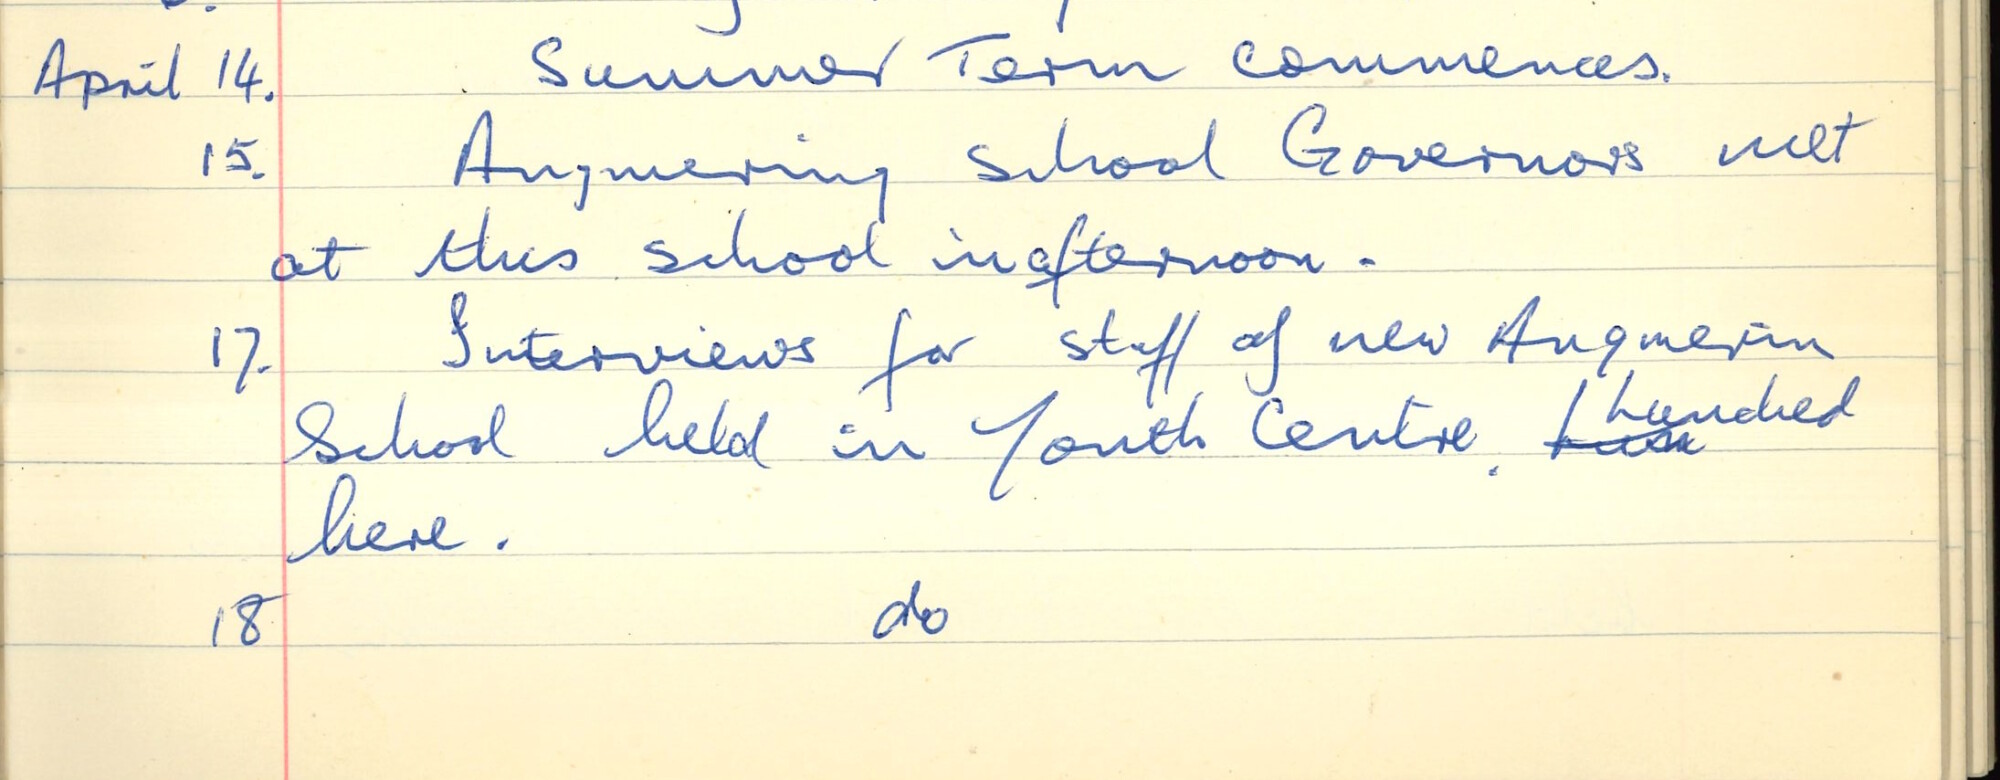 April 14. Summer Term commences.
15. Angmering School Governors met
at this school in afternoon.
17. Interviews for staff of new Angmerin
School held in Youth Centre. Lunched
here.
18 do